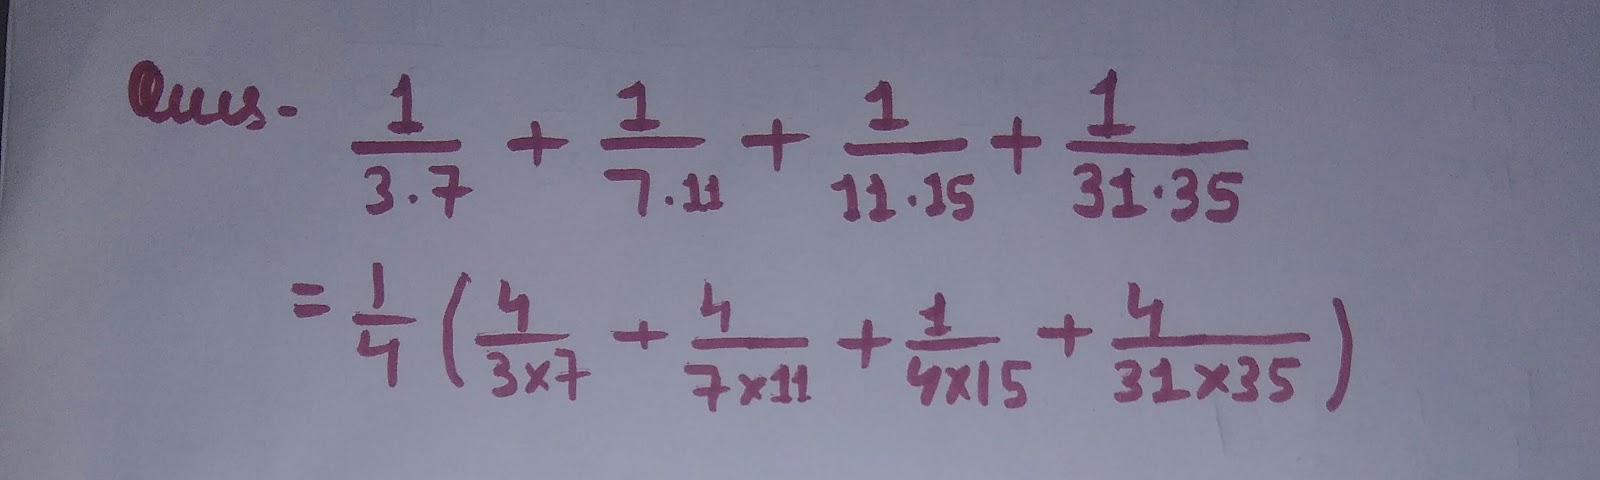 Ques- 1/3.7 + 1/7.11 + 1/11.15 + 1/31.35
= 1/4 ( 4/3x7 + 4/7x11 + 1/4x15 + 4/31x35 )